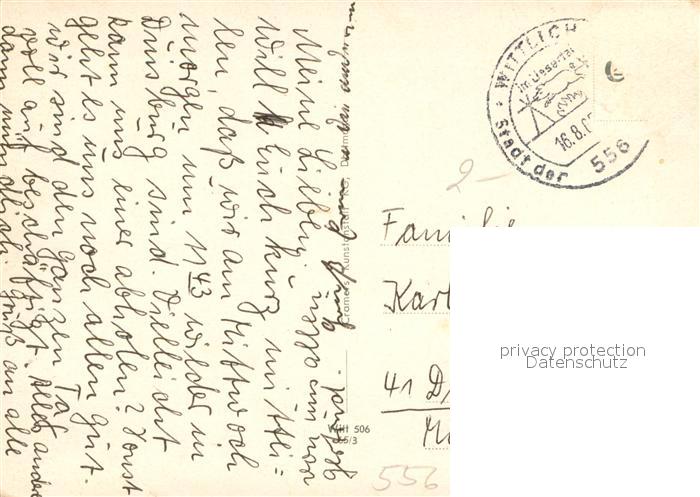 Meine Lieben,
will Euch kurz mittei=
len, daß wir am Mittwoch
morgen um 11 43 wieder in
Duisburg sind. Vielleicht
kann uns einer abholen? Sonst
geht es uns noch allen gut.
Wir sind den ganzen Tag
voll auf beschäftigt. Alles andere
dann mündlich. Gruß an alle
und
Cramers Kunstanstalt KG, Dortmund
Witt 506
65/3
WITTLICH
im Liesertal
16.8.6
Stadt der
556
2-
Familie
Karl
41 D
556
privacy protection
Datenschutz